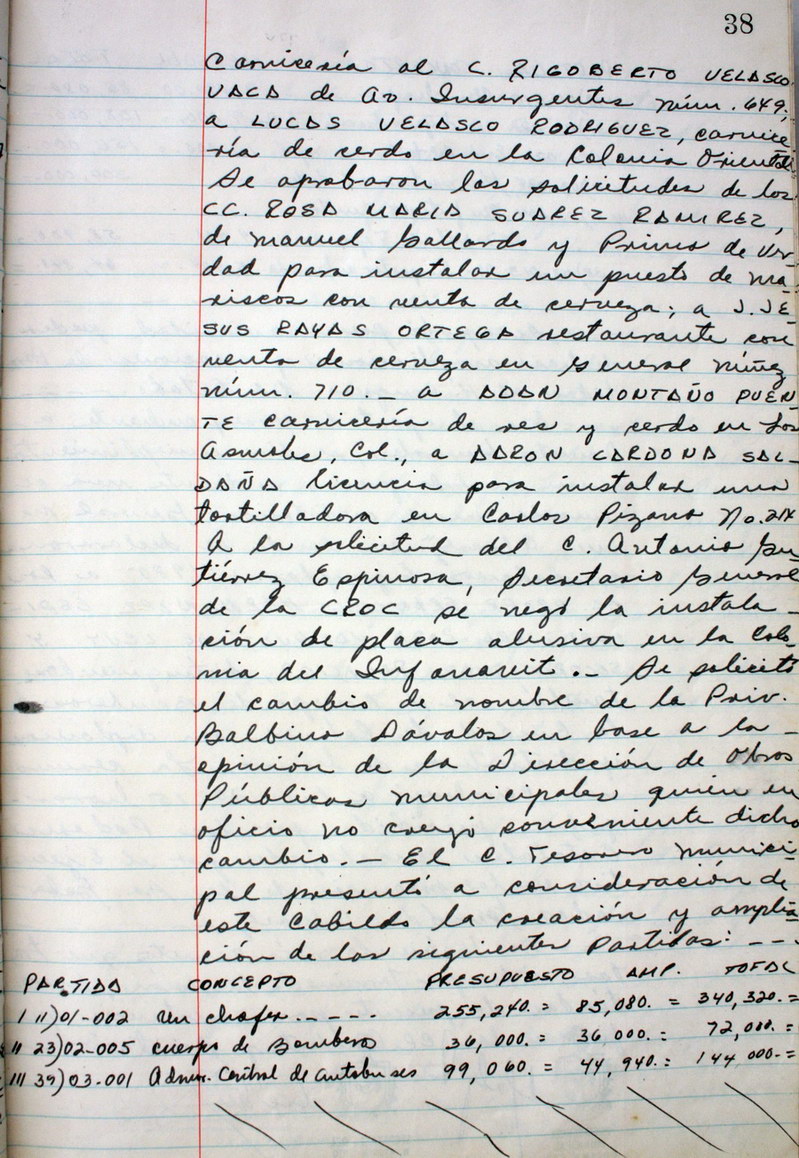 38
Carnicería al C. RIGOBERTO VELASCO
VACA de Av. Insurgentes núm. 649;
a LUCAS VELASCO RODRIGUEZ, carnice
ría de cerdo en la Colonia Oriental.
Se aprobaron las solicitudes de los
CC. ROSA MARIA SUAREZ RAMIREZ,
de Manuel Gallardo y Primo de Ver-
dad para instalar un puesto de ma-
riscos con venta de cerveza; a J. JE-
SUS RAYAS ORTEGA restaurante con
venta de cerveza en General Núñez
núm. 710. - a ADAN MONTAÑO PUEN-
TE carnicería de res y cerdo en Los
Asmoles, Col., a AARON CARDONA SAL-
DAÑA licencia para instalar una
tortilladora en Carlos Pizano No.
A la solicitud del C. Antonio Gu-
tiérrez Espinosa, Secretario General
de la CROC se negó la instala-
ción de placa alusiva en la Colo-
nia del Infonavit. - Se solicitó
el cambio de nombre de la Priv.
Balbino Dávalos en base a la -
opinión de la Dirección de Obras
Públicas Municipales quien en
oficio no creyó conveniente dicho
cambio. - El C. Tesorero Munici-
pal presentó a consideración de
este Cabildo la creación y amplia-
ción de las siguientes Partidas: - - -
PARTIDA CONCEPTO PRESUPUESTO AMP. TOTAL
I 11)01-002 Un chofer. - - - - 255,240. = 85,080. = 340,320. =
II 23)02-005 Cuerpo de Bomberos 36,000. = 36,000. = 72,000. =
III 39)03-001 Admón. Central de Autobuses 99,060. = 44,940. = 144,000. =